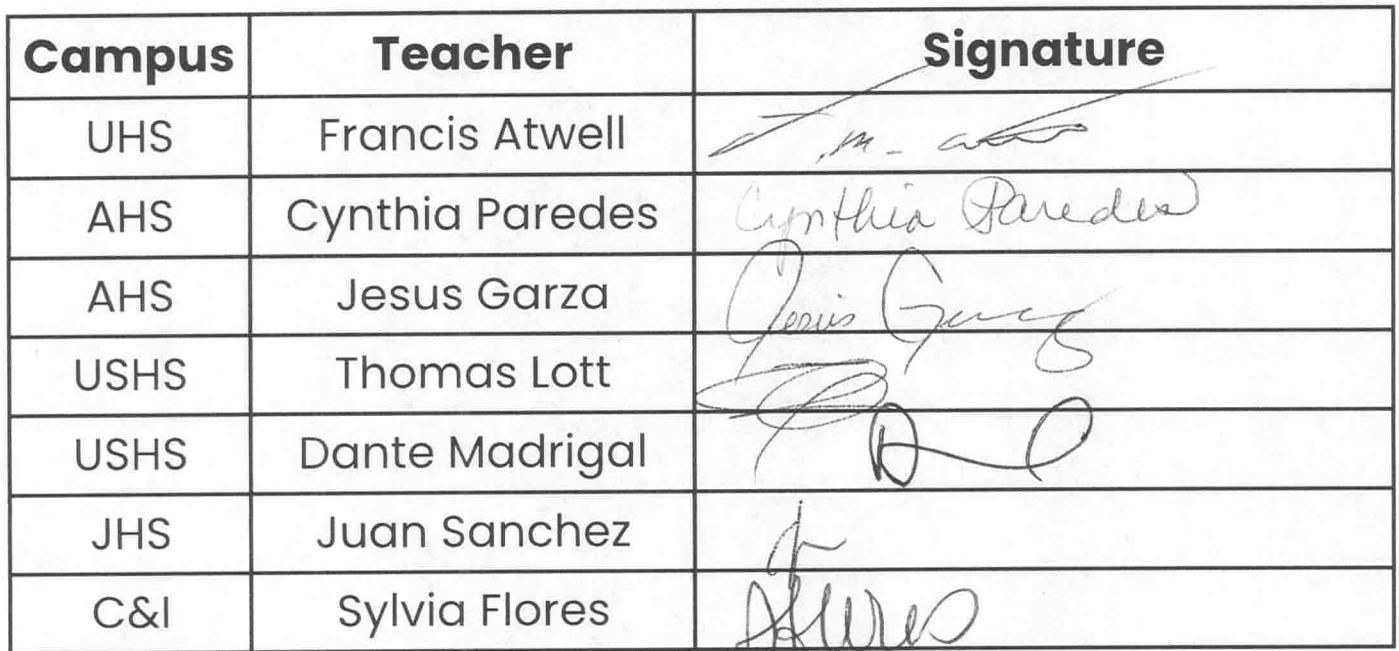 Campus Teacher Signature
UHS Francis Atwell
AHS Cynthia Paredes Cynthia Paredes
AHS Jesus Garza Jesus Garza
USHS Thomas Lott
USHS Dante Madrigal
JHS Juan Sanchez
C&I Sylvia Flores